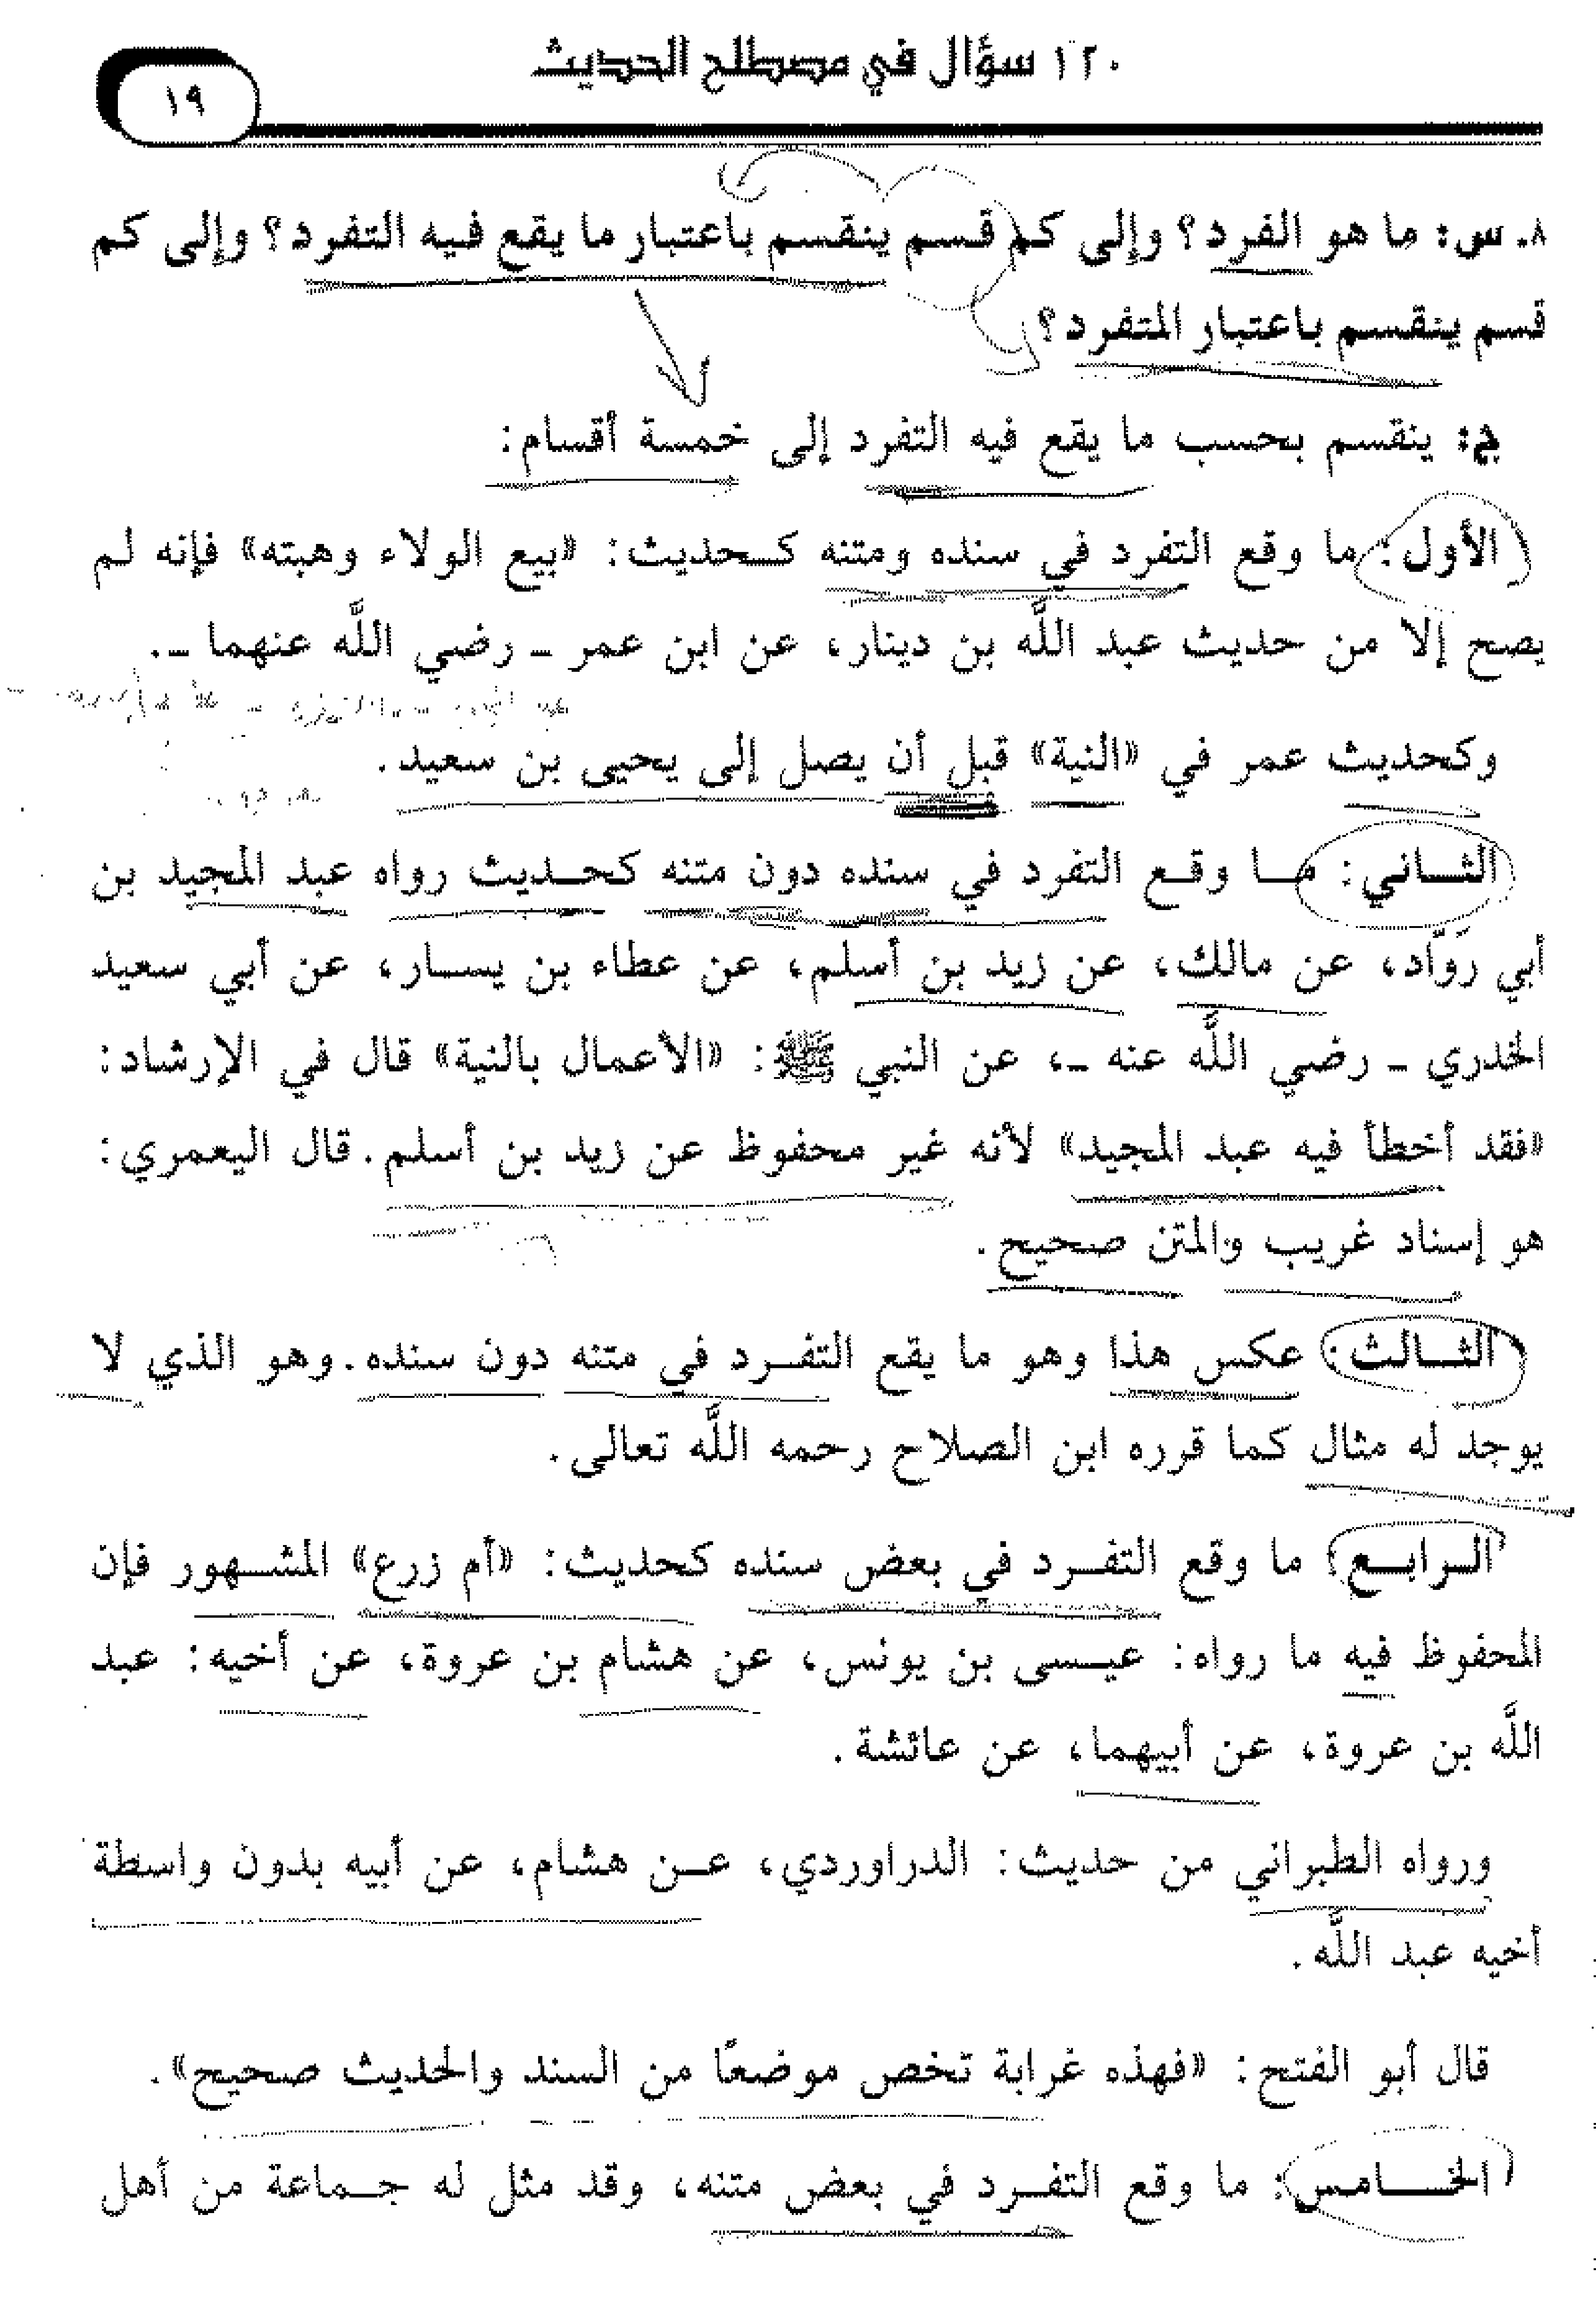 ١٢٠ سؤال في مصطلح الحديث
١٩
٨. س: ما هو الفرد؟ وإلى كم قسم ينقسم باعتبار ما يقع فيه التفرد؟ وإلى كم
قسم ينقسم باعتبار المتفرد؟
ج: ينقسم بحسب ما يقع فيه التفرد إلى خمسة أقسام:
الأول: ما وقع التفرد في سنده ومتنه كحديث: «بيع الولاء وهبته» فإنه لم
يصح إلا من حديث عبد اللَّه بن دينار، عن ابن عمر ـ رضي اللَّه عنهما ـ.
وكحديث عمر في «النية» قبل أن يصل إلى يحيى بن سعيد.
الثاني: ما وقع التفرد في سنده دون متنه كحديث رواه عبد المجيد بن
أبي روَّاد، عن مالك، عن زيد بن أسلم، عن عطاء بن يسار، عن أبي سعيد
الخدري ـ رضي اللَّه عنه ـ، عن النبي ﷺ: «الأعمال بالنية» قال في الإرشاد:
«فقد أخطأ فيه عبد المجيد» لأنه غير محفوظ عن زيد بن أسلم. قال اليعمري:
هو إسناد غريب والمتن صحيح.
الثالث: عكس هذا وهو ما يقع التفرد في متنه دون سنده. وهو الذي لا
يوجد له مثال كما قرره ابن الصلاح رحمه اللَّه تعالى.
الرابع: ما وقع التفرد في بعض سنده كحديث: «أم زرع» المشهور فإن
المحفوظ فيه ما رواه: عيسى بن يونس، عن هشام بن عروة، عن أخيه: عبد
اللَّه بن عروة، عن أبيهما، عن عائشة.
ورواه الطبراني من حديث: الدراوردي، عن هشام، عن أبيه بدون واسطة
أخيه عبد اللَّه.
قال أبو الفتح: «فهذه غرابة تخص موضعًا من السند والحديث صحيح».
الخامس: ما وقع التفرد في بعض متنه، وقد مثل له جماعة من أهل